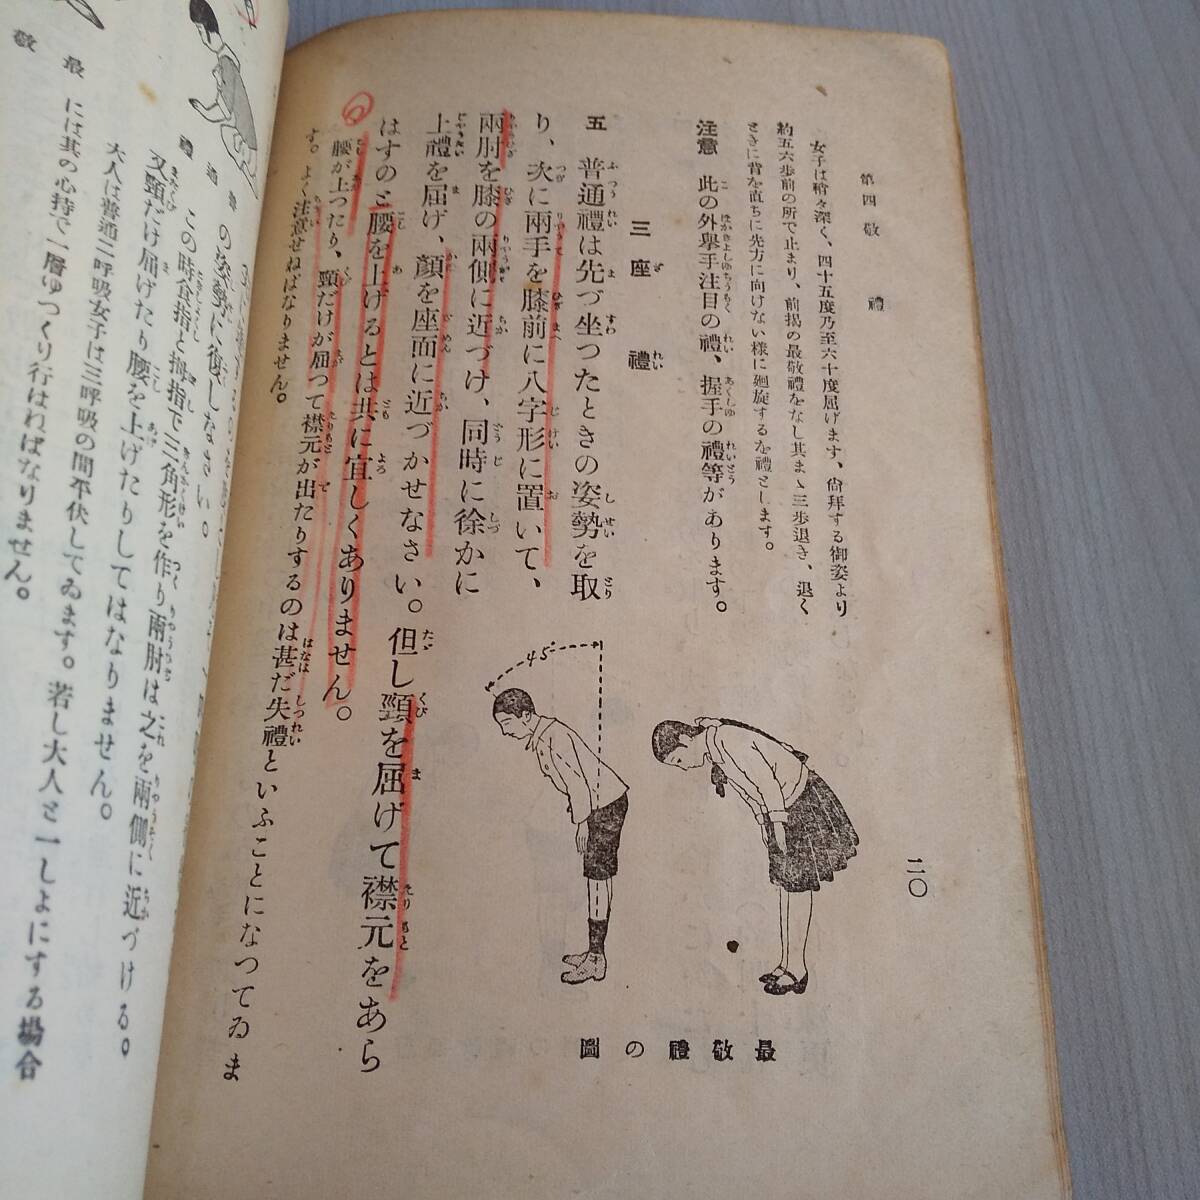 第四 敬禮
二〇
女子は稍々深く、四十五度乃至六十度屈げます、尙拜する御姿より
約五六步前の所で止まり、前揭の最敬禮をなし其まゝ三步退き、退く
ときに背を直ちに先方に向けない樣に廻旋するを禮とします。
注意 此の外擧手注目の禮、握手の禮等があります。
45°
最敬禮の圖
三 座禮
五 普通禮は先づ坐つたときの姿勢を取
り、次に兩手を膝前に八字形に置いて、
兩肘を膝の兩側に近づけ、同時に徐かに
上禮を屈げ、顏を座面に近づかせなさい。但し頸を屈げて襟元をあら
はすのと腰を上げるとは共に宜しくありません。
腰が上つたり、頸だけが屈つて襟元が出たりするのは甚だ失禮といふことになつてゐま
す。よく注意せねばなりません。
の姿勢に復しなさい。
この時食指と拇指で三角形を作り兩肘は之を兩側に近づける。
又頸だけ屈げたり腰を上げたりしてはなりません。
大人は普通二呼吸女子は三呼吸の間平伏してゐます。若し大人と一しよにする場合
には其の心持で一層ゆつくり行はねばなりません。
普通禮
最敬